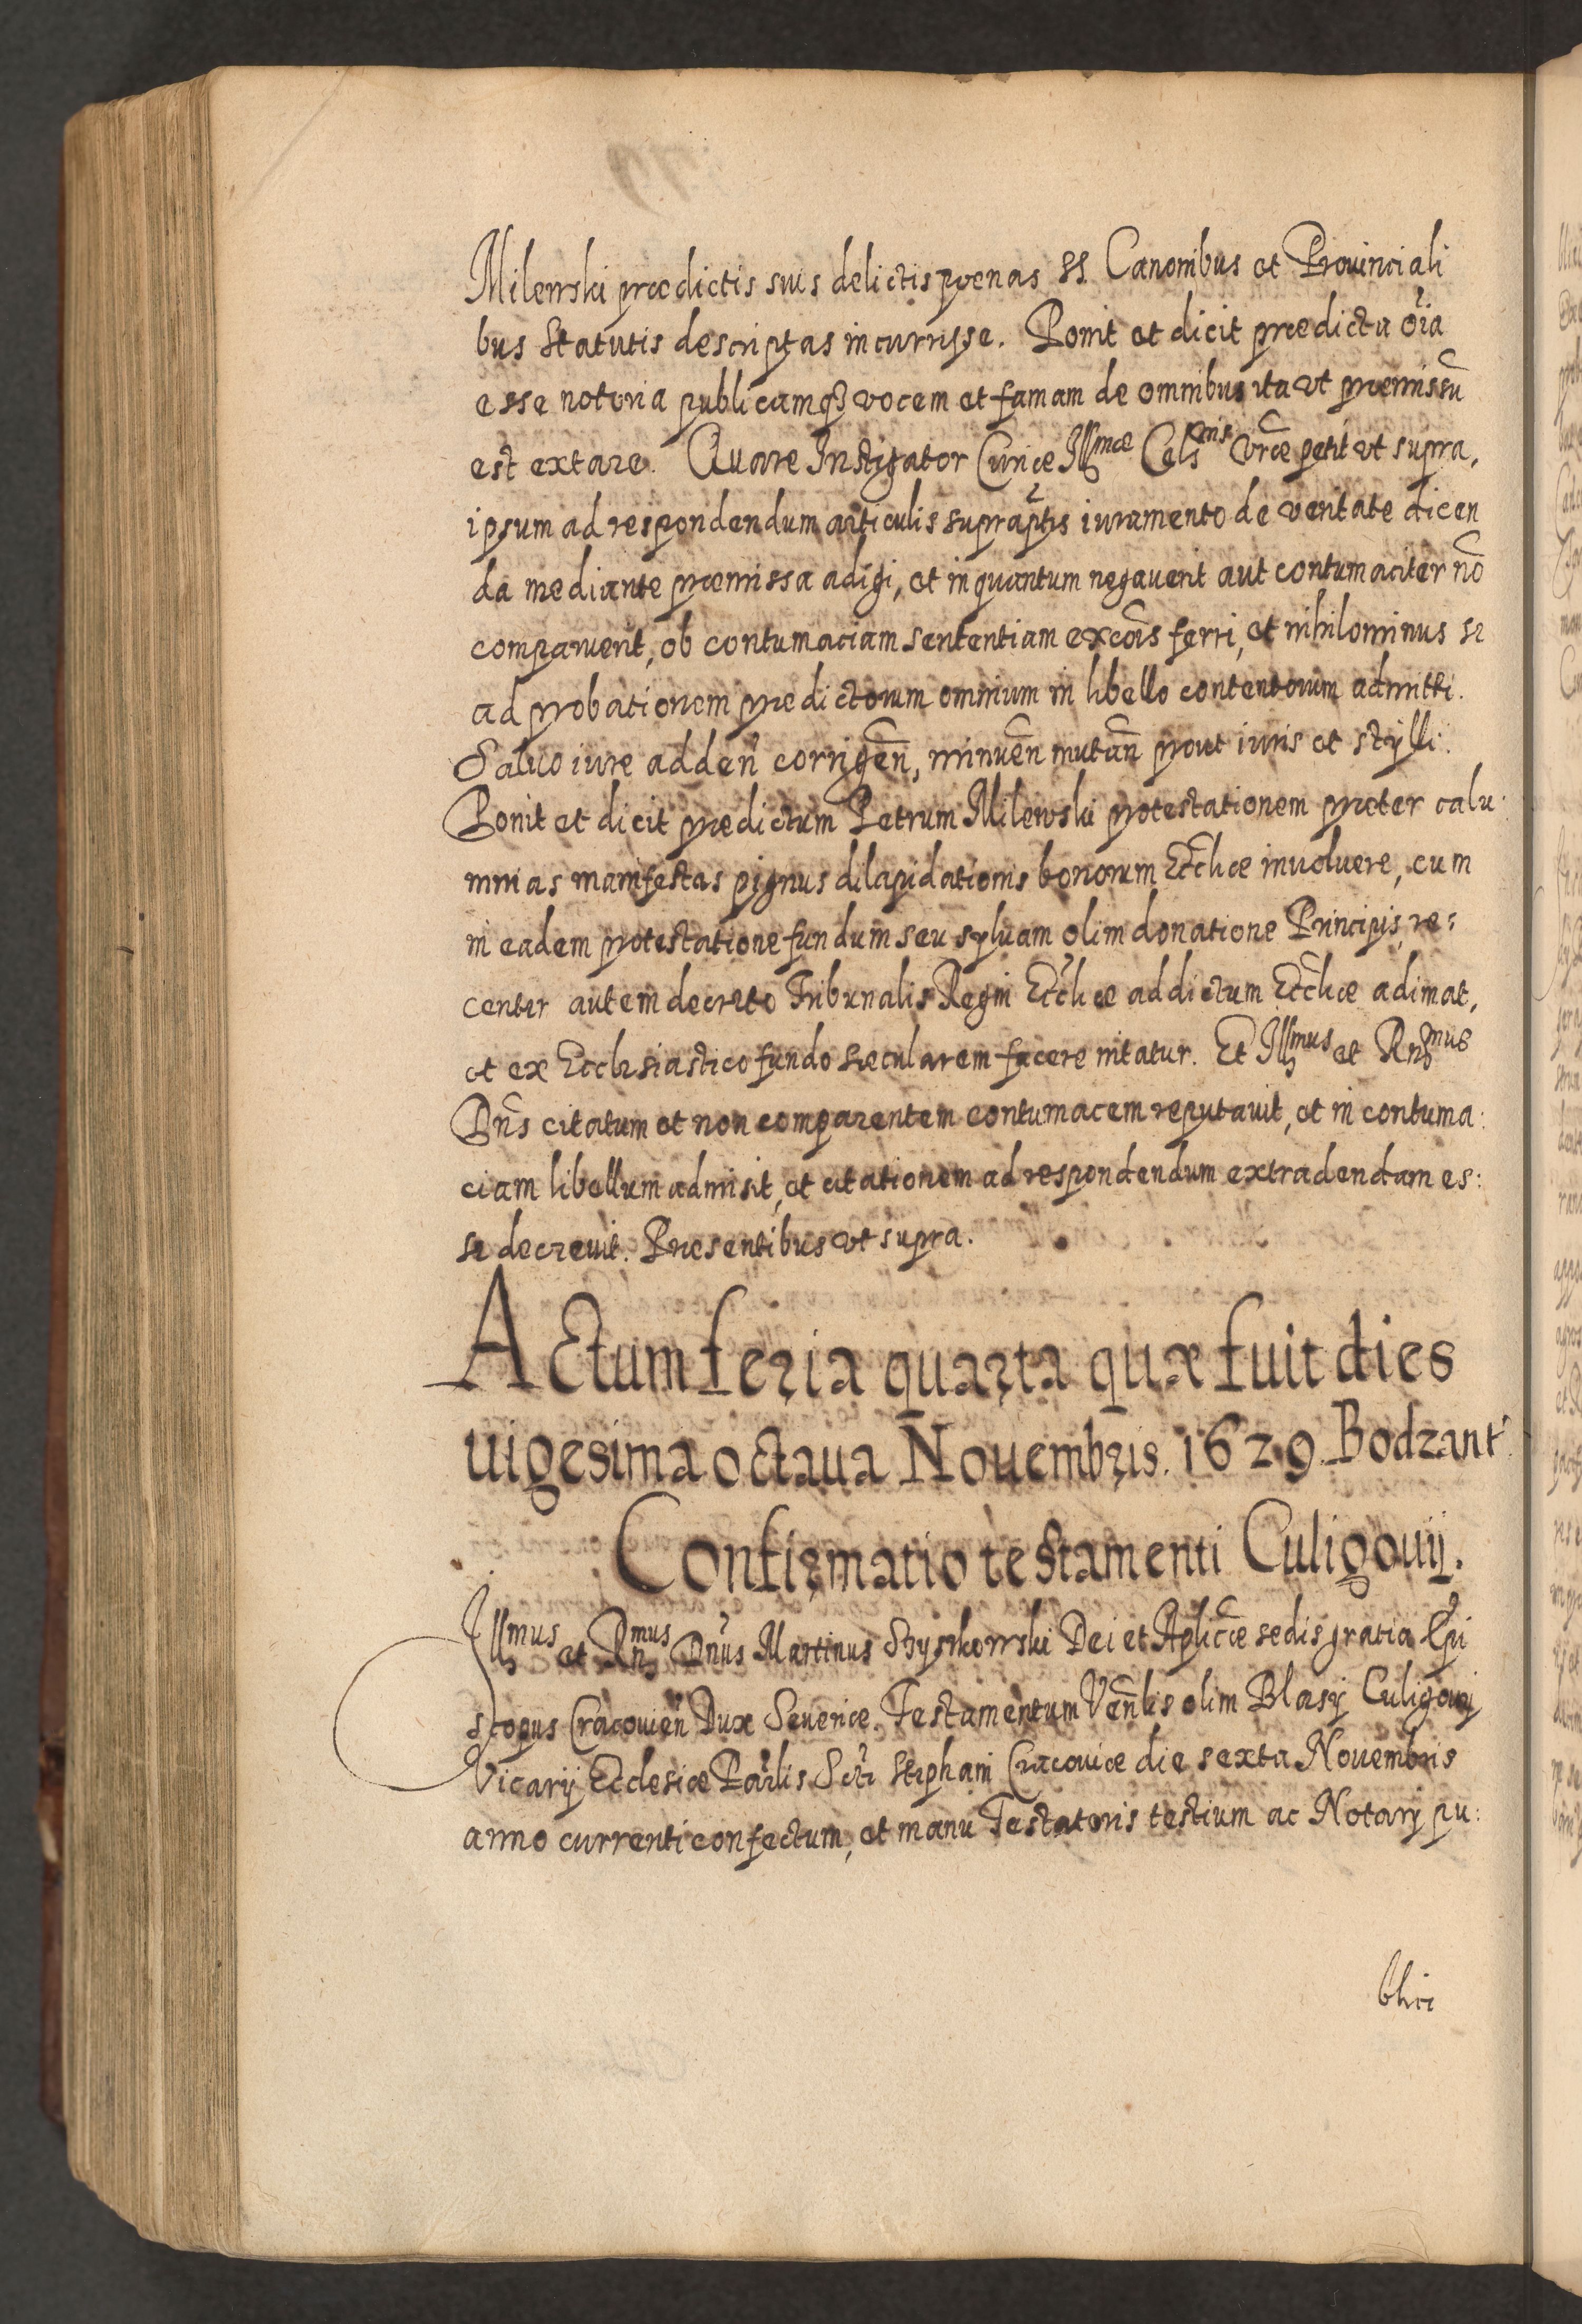 Milewski prædictis suis delictis pœnas SS. Canonibus et Prouinciali
bus Statutis descriptas incurrisse. Ponit et dicit prædicta oı̃a
esse notoria publicamq3 vocem et famam de omnibus ita vt præmissũ
est extare. Quare Instigator Curiæ Illmæ Celsnis Vræ petit vt supra,
ipsum ad respondendum articulis suprap̃tis iuramento de veritate dicen
da mediante præmissa adigi, et in quantum negauerit aut contumaciter nõ
comparuerit, ob contumaciam sententiam excõis ferri, et nihilominus se
ad probationem prædictorum omnium in libello contentorum admitti.
Saluo iure adden̄ corrigen̄, minuen̄ mutan̄ prout iuris et stylli.
Ponit et dicit prædictum Petrum Milewski protestationem præter calu:
mnias manifestas pignus dilapidationis bonorum Ecclīæ inuoluere, cum
in eadem protestatione fundum seu syluam olim donatione Principis, re:
center autem decreto Tribunalis Regni Ecclīæ addictum Ecclīæ adimat,
et ex Ecclesiastico fundo sæcularem facere nitatur. Et Illmus et Rndmus
Dñs citatum et non comparentem contumacem reputauit, et in contuma:
ciam libellum admisit, et citationem ad respondendum extradendam es:
se decreuit. Præsentibus vt supra.
Actum feria quarta quæ fuit dies
uigesima octaua Nouembris. 1629. Bodzant.
Confirmatio testamenti Culigouij.
Illmus et Rndmus Dñus Martinus Szyszkowski Dei et Aplicæ sedis gratia Epi
scopus Cracouien̄ Dux Seueriæ. Testamentum Venlis olim Blasij Culigouij
Vicarij Ecclesiæ Parlis Scti Stephani Cracouiæ die sexta Nouembris
anno currenti confectum, et manu Testatoris testium ac Notarij pu:
blici